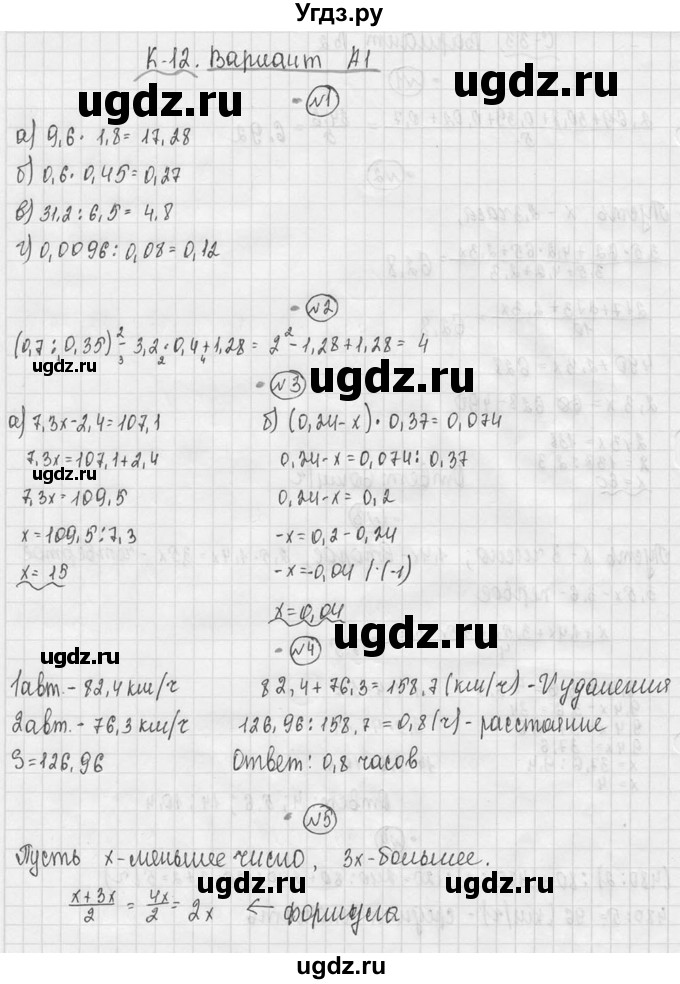 Угдз.ру
К-12. Вариант А1
ugdz.ru ugdz.ru
№1
а) 9,6 · 1,8 = 17,28
б) 0,6 · 0,45 = 0,27
в) 31,2 : 6,5 = 4,8
г) 0,0096 : 0,08 = 0,12
№2
(0,7 : 0,35)² - 3,2 · 0,4 + 1,28 = 2² - 1,28 + 1,28 = 4
1 3 2 4
ugdz.ru
№3 ugdz.ru
а) 7,3х - 2,4 = 107,1 б) (0,24 - х) · 0,37 = 0,074
7,3х = 107,1 + 2,4 0,24 - х = 0,074 : 0,37
7,3х = 109,5 0,24 - х = 0,2
х = 109,5 : 7,3 -х = 0,2 - 0,24
х = 15 -х = -0,04 /·(-1)
х = 0,04
ugdz.ru ugdz.ru
№4
1авт. - 82,4 км/ч 82,4 + 76,3 = 158,7 (км/ч) - V удаления
2авт. - 76,3 км/ч 126,96 : 158,7 = 0,8 (ч) - расстояние
S = 126,96 Ответ: 0,8 часов
ugdz.ru
№5
Пусть х - меньшее число, 3х - большее.
х + 3х / 2 = 4х / 2 = 2х ← формула
ugdz.ru
ugdz.ru